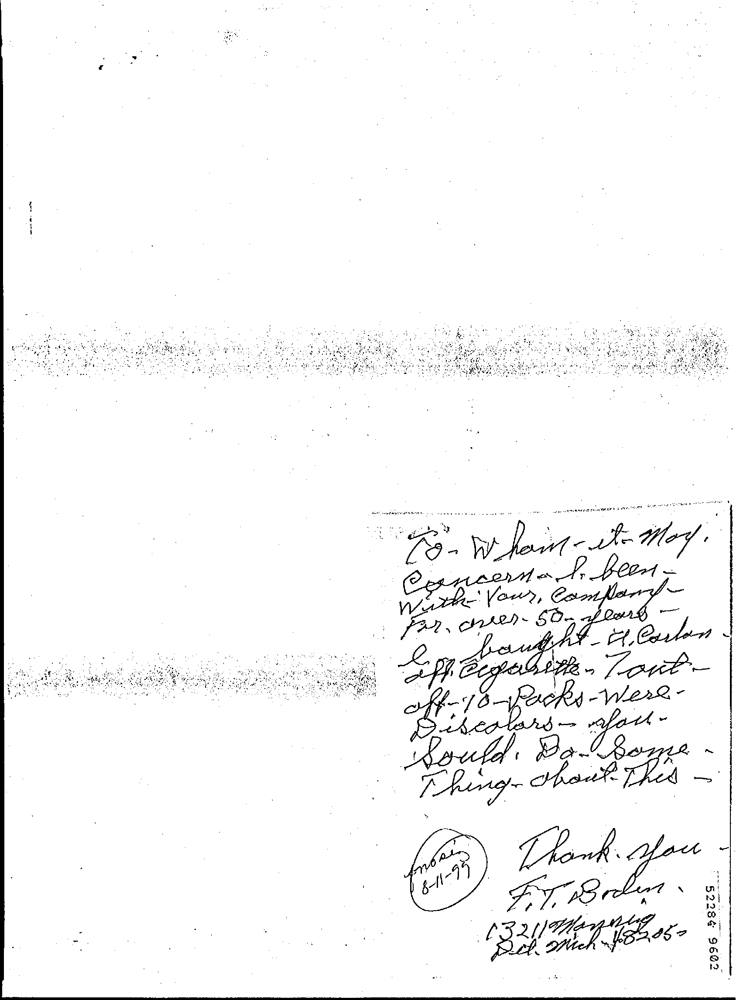 To-Whom-it-May.
Concern-I-been-
With-Your, Company-
For, over-50-years-
I bought-a, Carton
off, Cigarette-7 out-
off-10-Packs-Were-
Discolors-you-
Sould, Do-Some-
Thing-about-This-
Thank-you-
F.T. Boden.
8-11-99
13211 Manning
Det. Mich-48205-
52284 9602